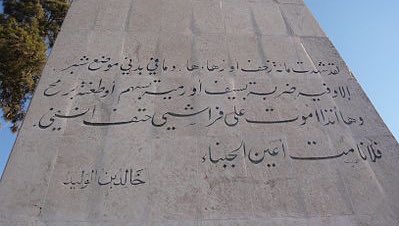 لقد شهدت مائة زحف او زهاءها . وما في بدني موضع شبر
الا وفيه ضربة بسيف او رمية بسهم أو طعنة برمح
وها انذا اموت على فراشي حتف انفي
فلا نامت أعين الجبناء
خالد بن الوليد